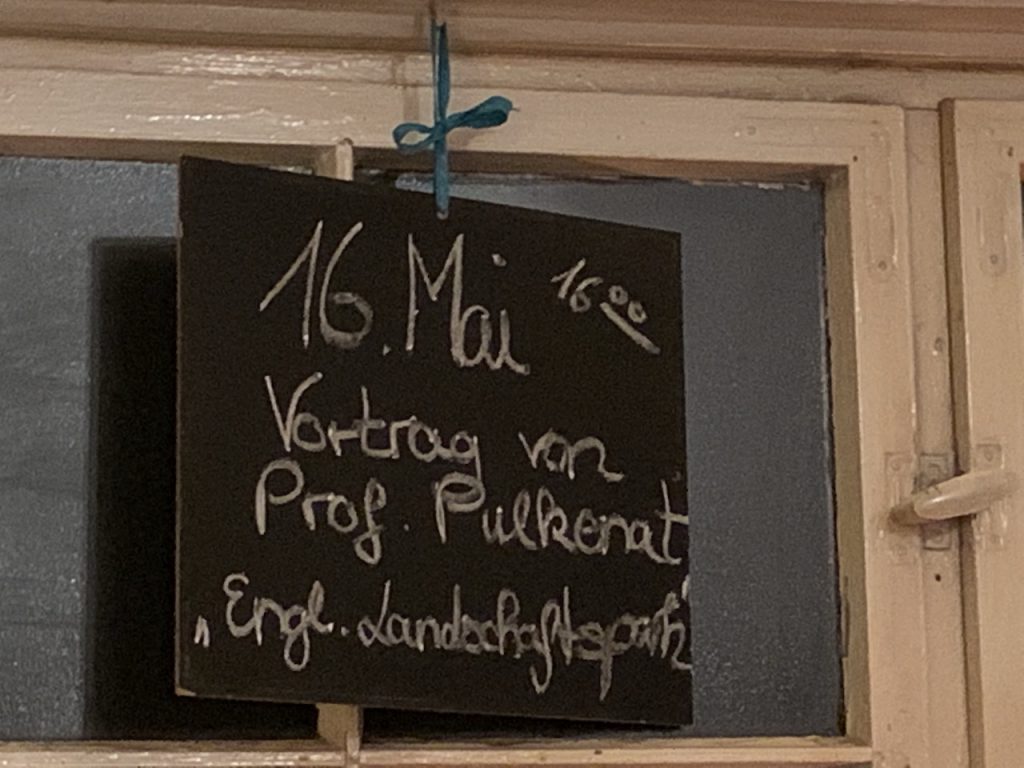 16. Mai 16 00
Vortrag von
Prof. Pulkenat
„Engl. Landschaftspark"